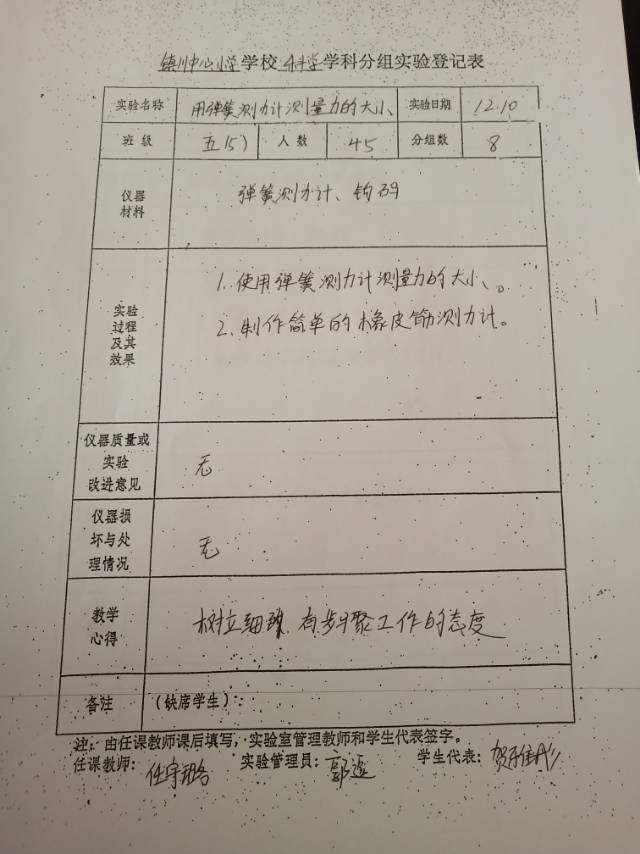 镇川中心小学学校 科学学科分组实验登记表
实验名称 用弹簧测力计测量力的大小、 实验日期 12.10
班 级 五(5) 人 数 45 分组数 8
仪器
材料
弹簧测力计、钩码
实验
过程
及其
效果
1.使用弹簧测力计测量力的大小、。
2.制作简单的橡皮筋测力计。
仪器质量或
实验
改进意见
无
仪器损
坏与处
理情况
无
教学
心得
树立细 有步骤工作的态度
备注 (缺席学生):
注: 由任课教师课后填写,实验室管理教师和学生代表签字。
任课教师: 任宇 实验管理员: 郭 学生代表: 贺